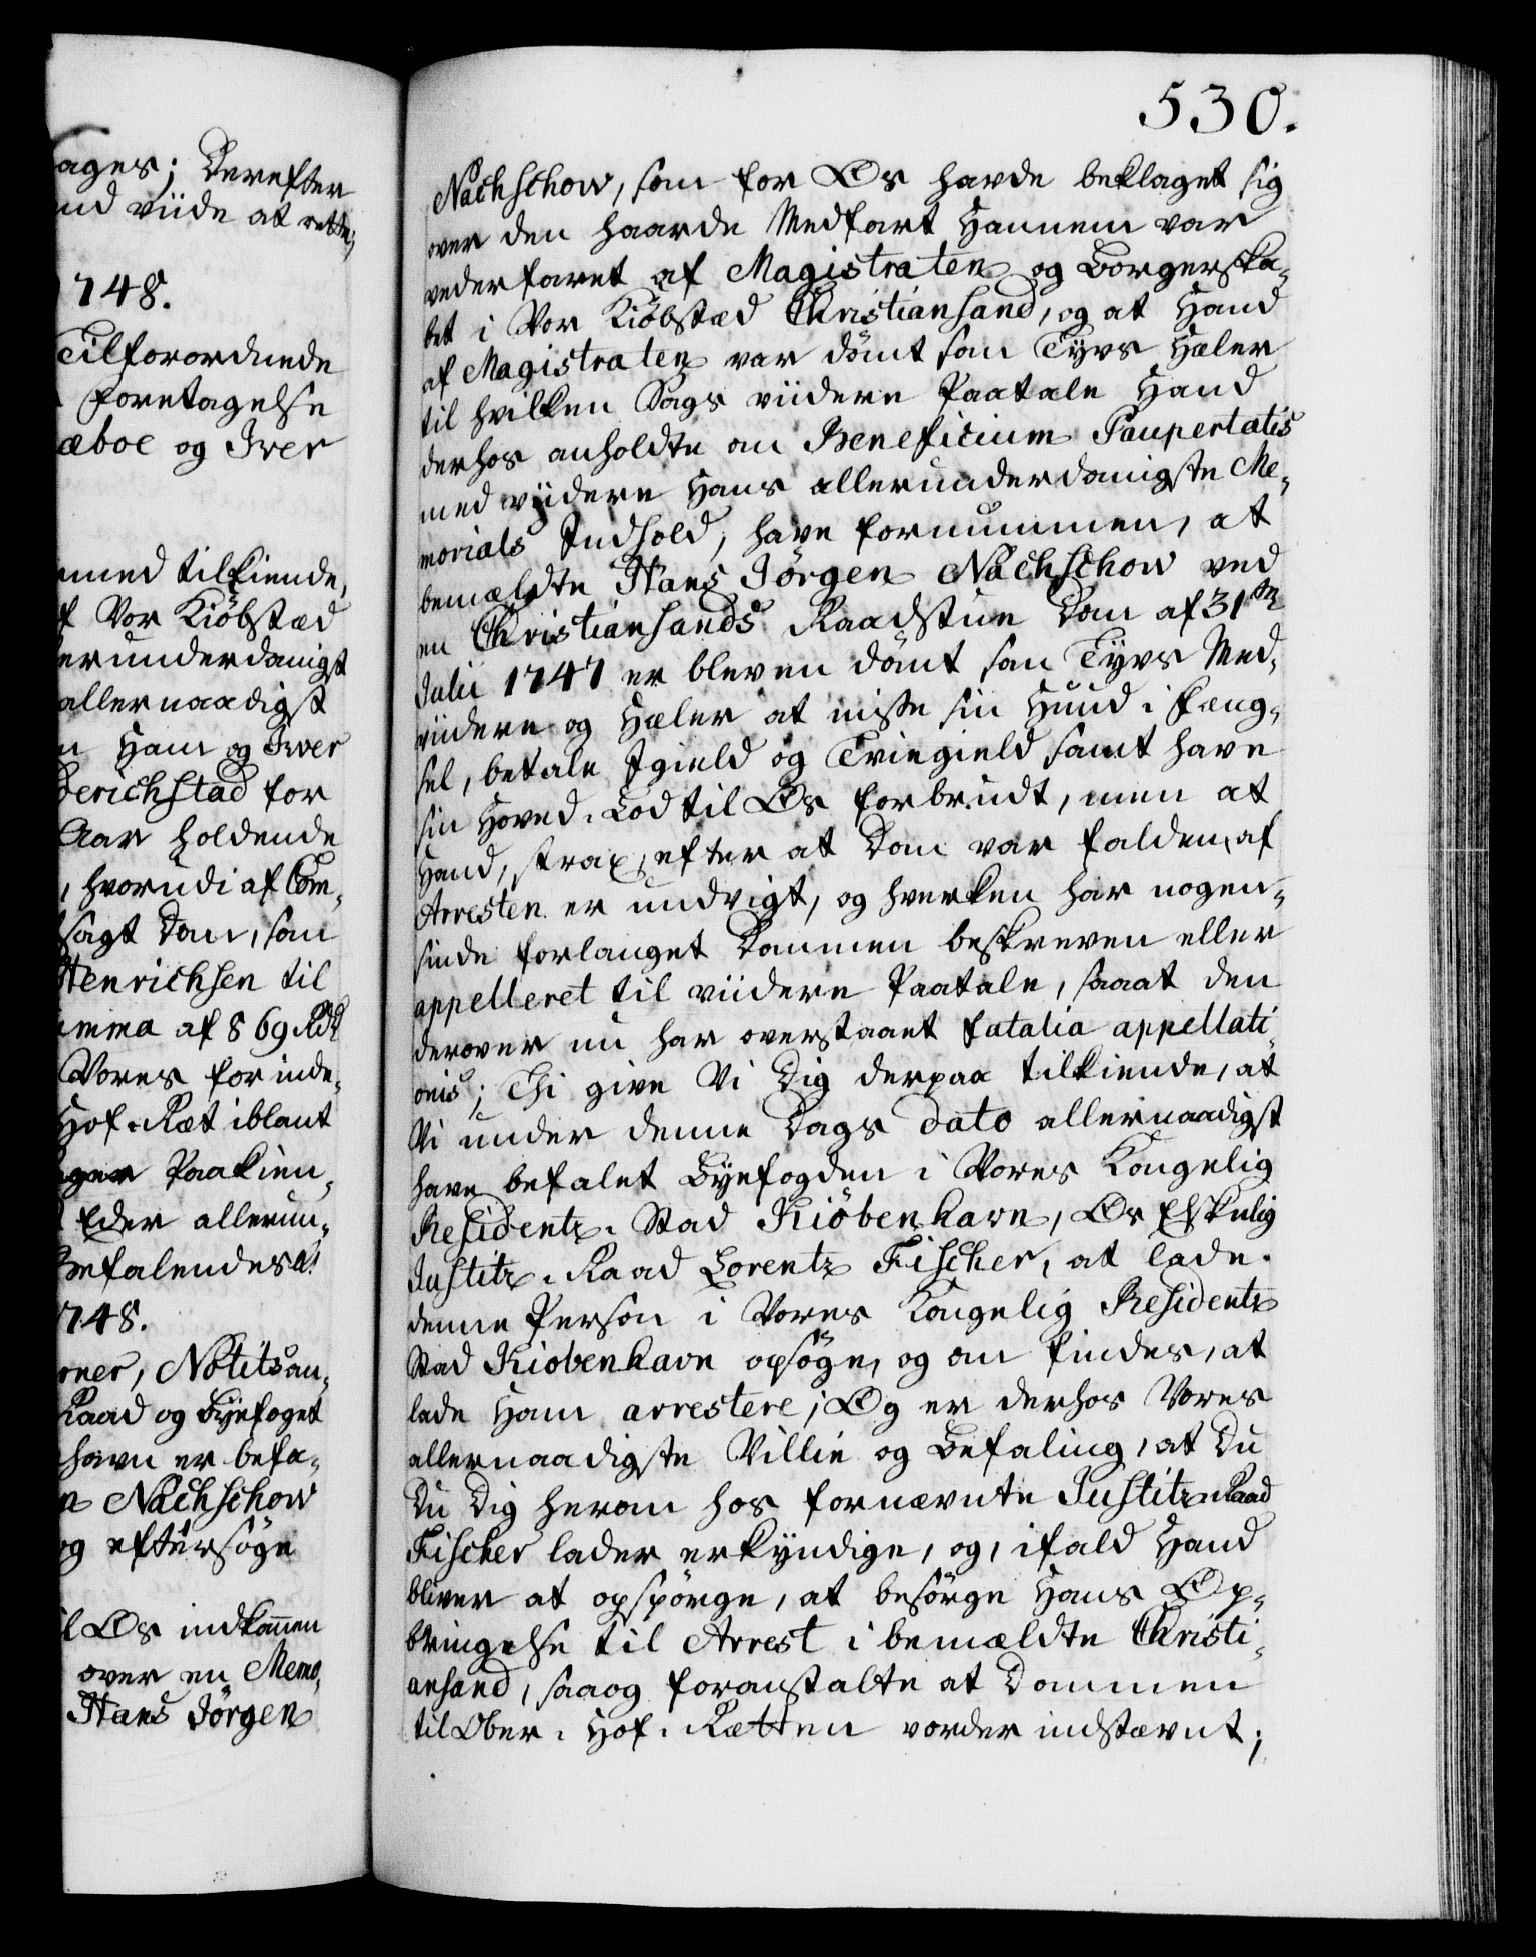 ages; Derefter
nd viide at rette;
1748.
Tilforordnede
Foretagelse
æboe og Iver
med tilkiende,
f Vor Kiöbstæd
erunderdanigst
allernaadigst
n Ham og Iver
derichstad for
Aar holdende
, hvorudi af Com,
sagt Dom, som
Henrichsen til
umma af 869 Rdr
Vores forinde,
Hof-Ræt iblant
Paakien,
Eder allerun,
Befalendes
1748.
rner, Notitsan,
Raad og Byefoget
havn er befa,
n Nachschow
og eftersöge
l Os indkommen
over en Memo,
Hans Jörgen
530.
Nachschow, som for Os havde beklaget sig
over den haarde Medfart Hannem var
vederfaret af Magistraten og Borgerska,
bet i Vor Kiöbstæd Christiansand, og at Hand
af Magistraten var dömt som Tyvs Hæler
til hvilken Sags viidere Paatale Hand
derhos anholdte om Beneficium Paupertatis
med viidere Hans allerunderdanigste Me,
morials Indhold, have fornummen, at
bemældte Hans Jörgen Nachschow ved
en Christiansands Raadstue Dom af 31te
Julii 1747 er bleven dömt som Tyvs Med,
viidere og Hæler at miste sin Huud i Fæng,
sel, betale Igield og Tviegield samt have
sin Hoved-Lod til Os forbrudt, men at
Hand, strax, efter at Dom var falden, af
Arresten er undvigt, og hverken har nogen,
sinde forlanget Dommen beskreven eller
appelleret til viidere Paatale, saaat den
derover nu har overstaaet fatalia appellati,
onis; Thi give Vi Dig derpaa tilkiende, at
Vi under denne Dags dato allernaadigst
have befalet Byefogden i Vores Kongelig
Residentz-Stad Kiöbenhavn, Os Elskelig
Justitz-Raad Lorentz Fischer, at lade
denne Person i Vores Kongelig Residentz
Stad Kiöbenhavn opsöge, og om findes, at
lade Ham arrestere; Og er derhos Vores
allernaadigste Villie og Befaling, at Du
Du Dig herom hos fornævnte Justitz-Raad
Fischer lader erkyndige, og, ifald Hand
bliver at opspörge, at besörge Hans Op,
bringelse til Arrest i bemældte Christi,
ansand, saaog foranstalte at Dommen
til Ober-Hof-Rætten vorder indstævnt;